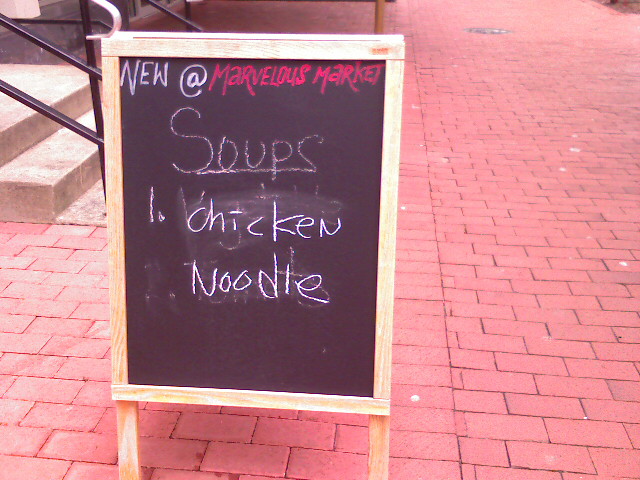 NEW @ MARVELOUS MARKET
Soups
1. chicken
Noodle